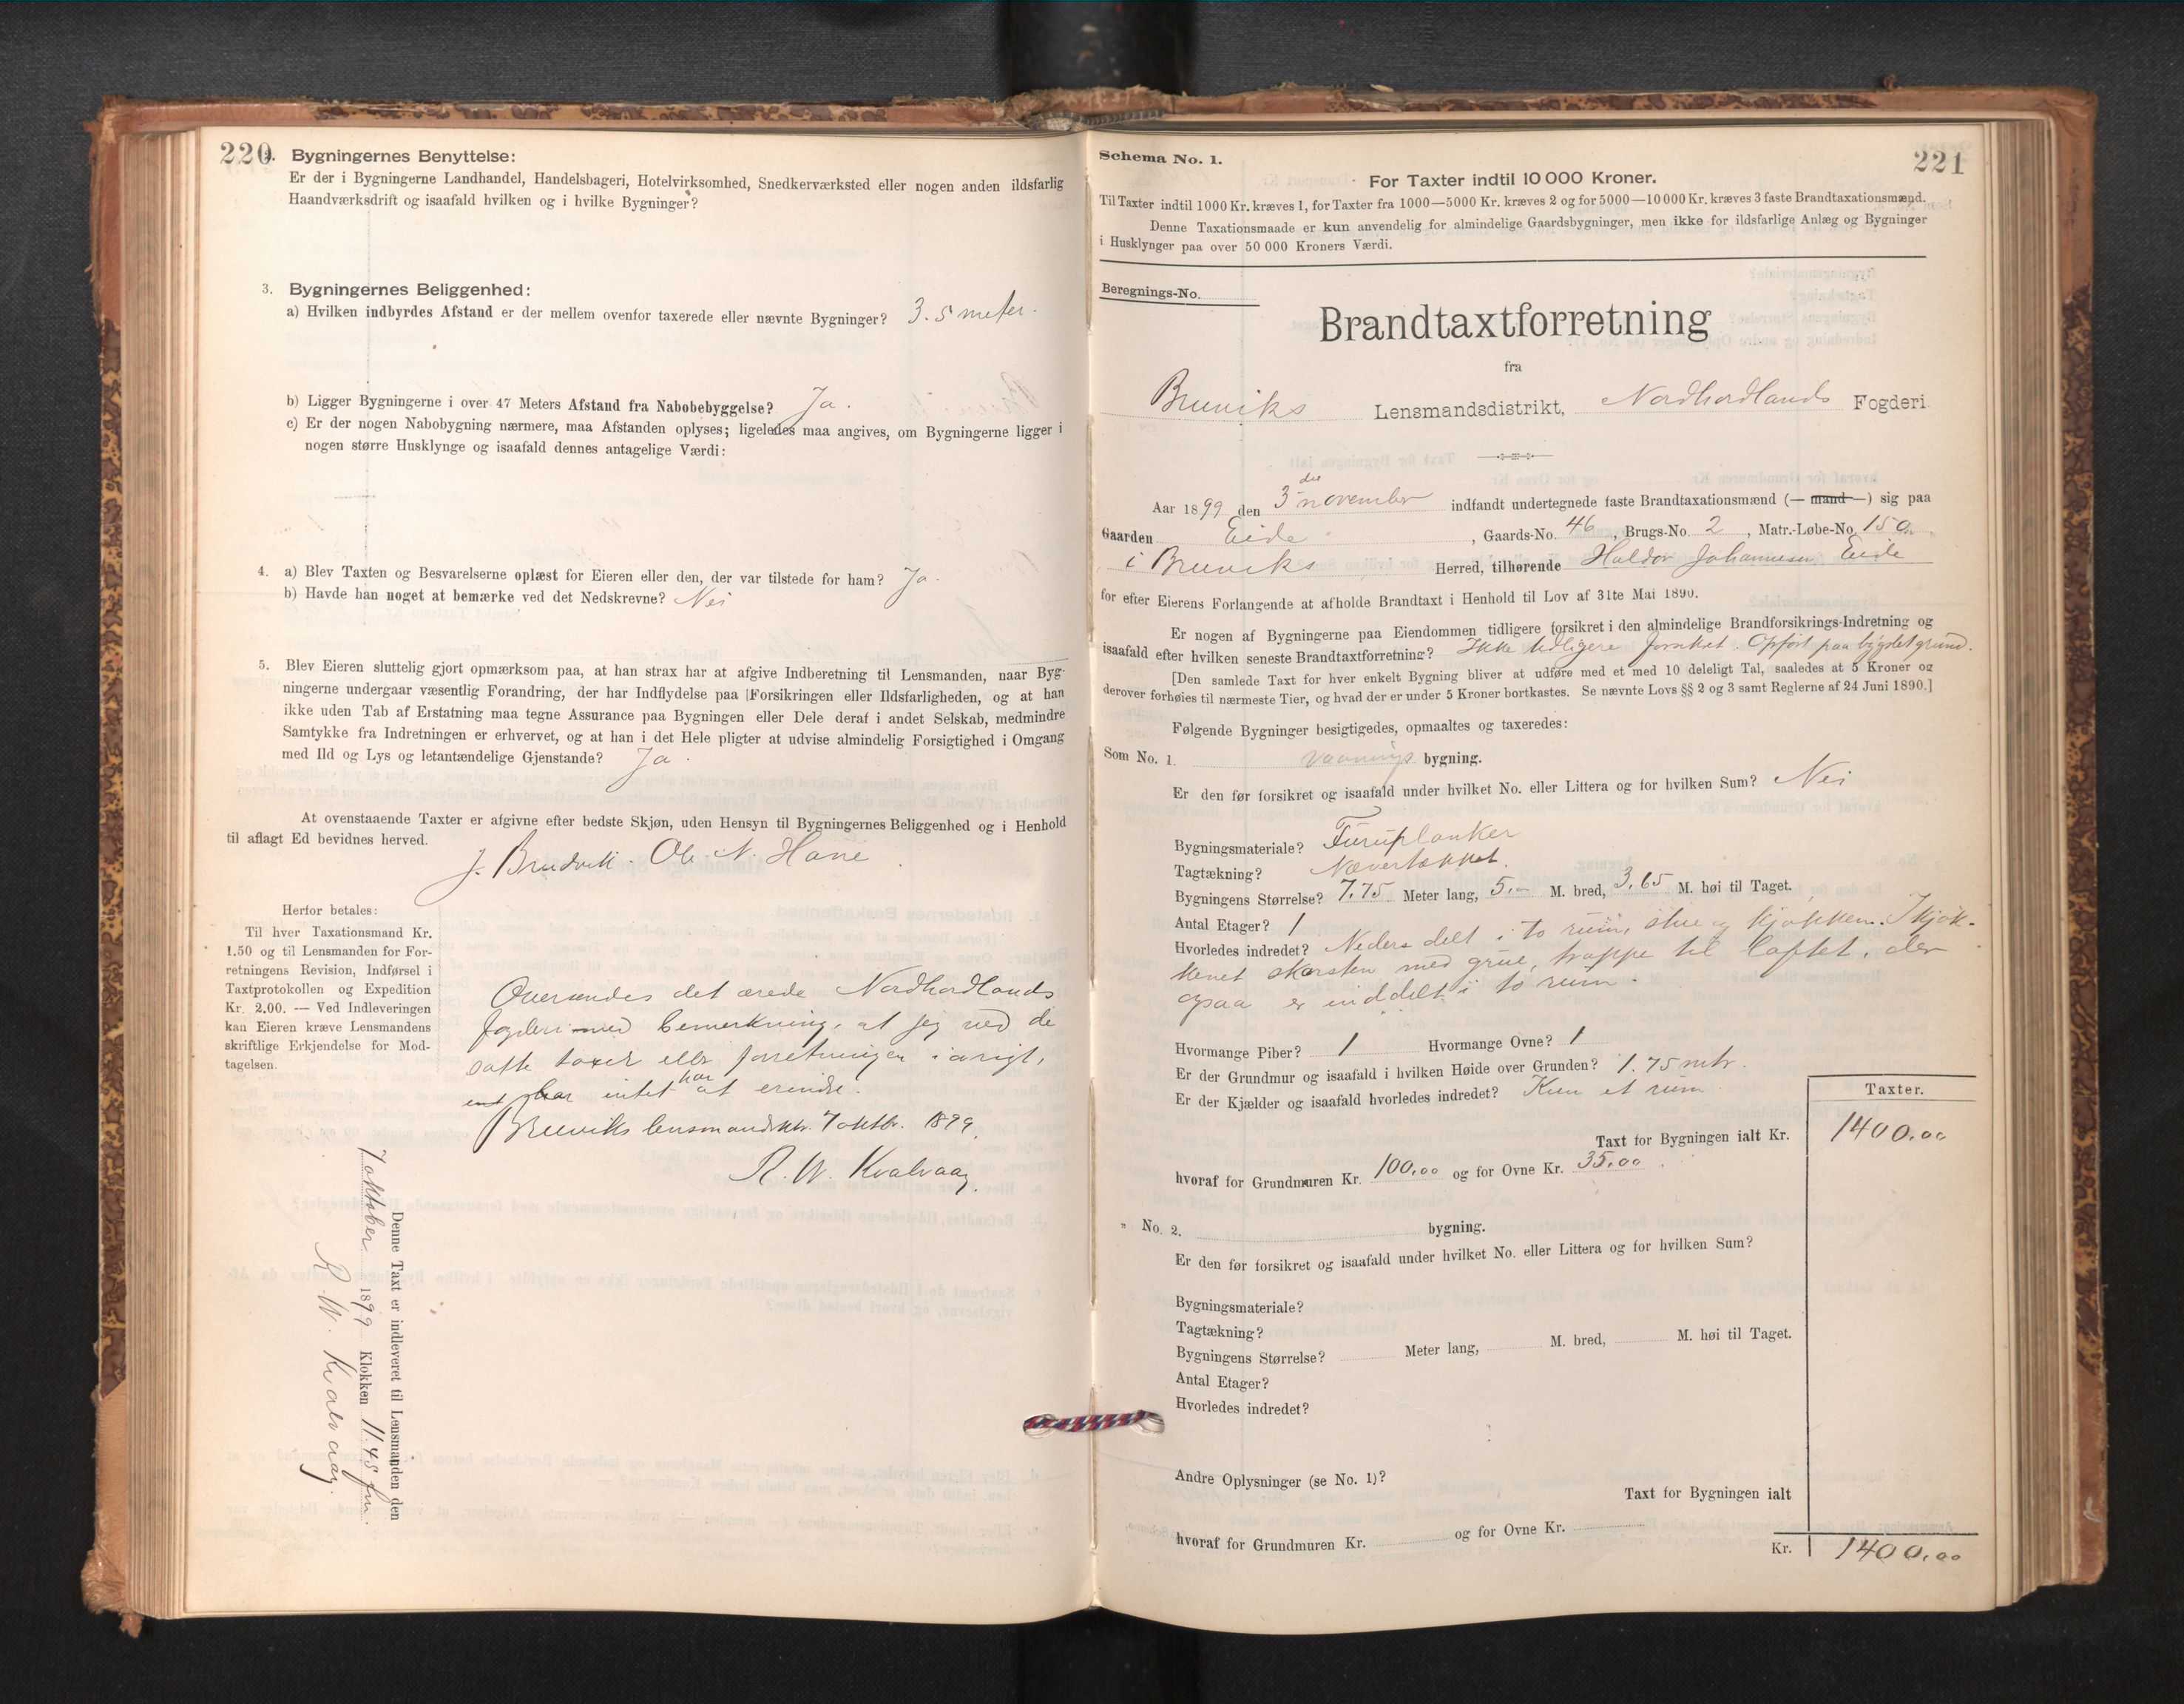 220
2. Bygningernes Benyttelse:
Er der i Bygningerne Landhandel, Handelsbageri, Hotelvirksomhed, Snedkerværksted eller nogen anden ildsfarlig
Haandværksdrift og isaafald hvilken og i hvilke Bygninger?
3. Bygningernes Beliggenhed:
a) Hvilken indbyrdes Afstand er der mellem ovenfor taxerede eller nævnte Bygninger? 3.5 meter.
b) Ligger Bygningerne i over 47 Meters Afstand fra Nabobebyggelse? Ja.
c) Er der nogen Nabobygning nærmere, maa Afstanden oplyses; ligeledes maa angives, om Bygningerne ligger i
nogen større Husklynge og isaafald dennes antagelige Værdi:
4. a) Blev Taxten og Besvarelserne oplæst for Eieren eller den, der var tilstede for ham? Ja.
b) Havde han noget at bemærke ved det Nedskrevne? Nei
5. Blev Eieren sluttelig gjort opmærksom paa, at han strax har at afgive Indberetning til Lensmanden, naar Byg-
ningerne undergaar væsentlig Forandring, der har Indflydelse paa Forsikringen eller Ildsfarligheden, og at han
ikke uden Tab af Erstatning maa tegne Assurance paa Bygningen eller Dele deraf i andet Selskab, medmindre
Samtykke fra Indretningen er erhvervet, og at han i det Hele pligter at udvise almindelig Forsigtighed i Omgang
med Ild og Lys og letantændelige Gjenstande? Ja.
At ovenstaaende Taxter er afgivne efter bedste Skjøn, uden Hensyn til Bygningernes Beliggenhed og i Henhold
til aflagt Ed bevidnes herved.
J. Brudvik. Ole N. Hane.
Herfor betales:
Til hver Taxationsmand Kr.
1.50 og til Lensmanden for For-
retningens Revision, Indførsel i
Taxtprotokollen og Expedition
Kr. 2.00. — Ved Indleveringen
kan Eieren kræve Lensmandens
skriftlige Erkjendelse for Mod-
tagelsen.
Oversendes det ærede Nordhordlands
fogderi med bemerkning, at jeg ved de
satte taxer eller forretningen iøvrigt,
har intet at erindre.
Bruviks lensmandsktr. 7 oktbr. 1899.
R. W. Kvalvaag.
Denne Taxt er indleveret til Lensmanden den
7 oktober 1899 Klokken 11.45 fm.
R. W. Kvalvaag.
221
Schema No. 1.
For Taxter indtil 10 000 Kroner.
Til Taxter indtil 1000 Kr. kræves 1, for Taxter fra 1000—5000 Kr. kræves 2 og for 5000—10 000 Kr. kræves 3 faste Brandtaxationsmænd.
Denne Taxationsmaade er kun anvendelig for almindelige Gaardsbygninger, men ikke for ildsfarlige Anlæg og Bygninger
i Husklynger paa over 50 000 Kroners Værdi.
Beregnings-No.
Brandtaxtforretning
fra
Bruviks Lensmandsdistrikt, Nordhordlands Fogderi
Aar 1899 den 3die november indfandt undertegnede faste Brandtaxationsmænd (— mand —) sig paa
Gaarden Eide, Gaards-No. 46, Brugs-No. 2, Matr.-Løbe-No. 150a.
i Bruviks Herred, tilhørende Haldor Johannesen Eide
for efter Eierens Forlangende at afholde Brandtaxt i Henhold til Lov af 31te Mai 1890.
Er nogen af Bygningerne paa Eiendommen tidligere forsikret i den almindelige Brandforsikrings-Indretning og
isaafald efter hvilken seneste Brandtaxtforretning? Ikke tidligere forsikret. Opført paa bygslet grund.
[Den samlede Taxt for hver enkelt Bygning bliver at udføre med et med 10 deleligt Tal, saaledes at 5 Kroner og
derover forhøies til nærmeste Tier, og hvad der er under 5 Kroner bortkastes. Se nævnte Lovs §§ 2 og 3 samt Reglerne af 24 Juni 1890.]
Følgende Bygninger besigtigedes, opmaaltes og taxeredes:
Som No. 1. vaanings bygning.
Er den før forsikret og isaafald under hvilket No. eller Littera og for hvilken Sum? Nei
Bygningsmateriale? Furuplanker
Tagtækning? Nævertækket.
Bygningens Størrelse? 7.75 Meter lang, 5.00 M. bred, 3.65 M. høi til Taget.
Antal Etager? 1
Hvorledes indredet? Neders delt i to rum, stue og kjøkken. I kjøk-
kenet skorsten med grue, trappe til loftet, der
ogsaa er inddelt i to rum.
Hvormange Piber? 1 Hvormange Ovne? 1
Er der Grundmur og isaafald i hvilken Høide over Grunden? 1.75 mtr.
Er der Kjælder og isaafald hvorledes indredet? Kun et rum
Taxter.
Taxt for Bygningen ialt Kr. 1400.00
hvoraf for Grundmuren Kr. 100.00 og for Ovne Kr. 35.00.
" No. 2. bygning.
Er den før forsikret og isaafald under hvilket No. eller Littera og for hvilken Sum?
Bygningsmateriale?
Tagtækning?
Bygningens Størrelse? Meter lang, M. bred, M. høi til Taget.
Antal Etager?
Hvorledes indredet?
Andre Oplysninger (se No. 1)?
Taxt for Bygningen ialt
hvoraf for Grundmuren Kr. og for Ovne Kr.
Kr. 1400.00